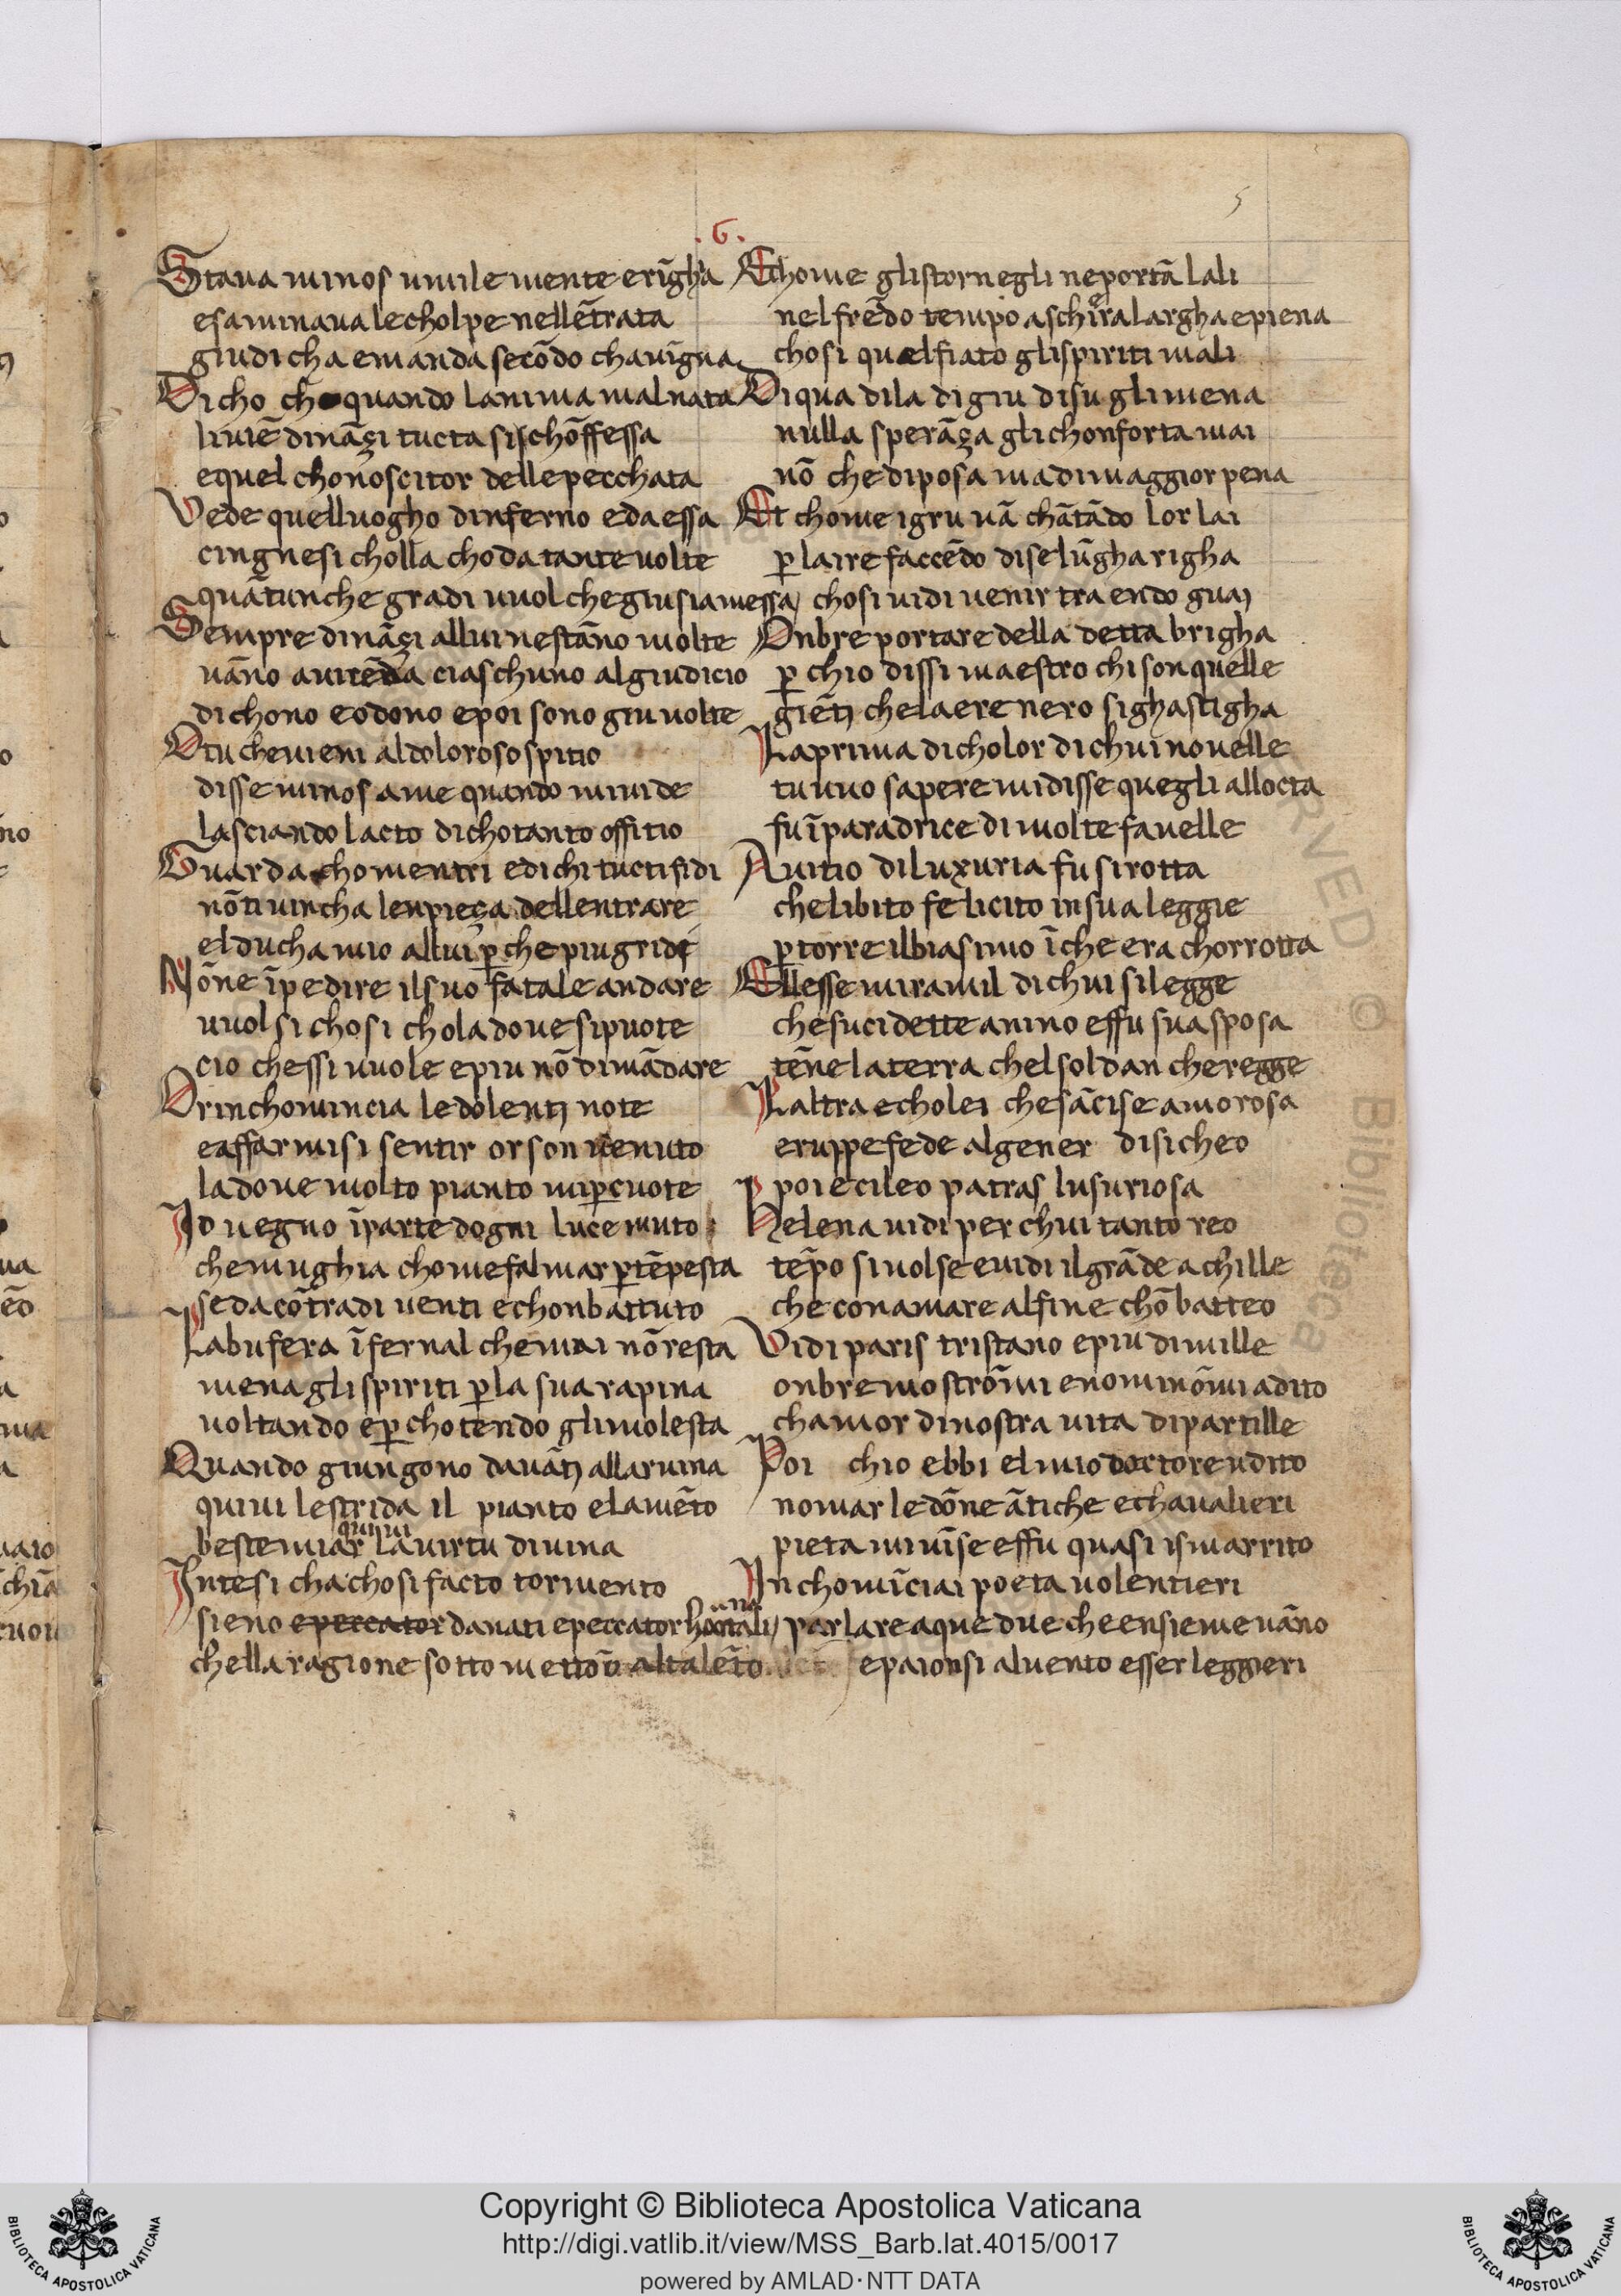 5
.6.
Staua minos umilemente erīgh'a
esaminaua lecholpe nellētrata
giudicha emanda secōdo chauīgna
Dicho che quando lanima malnata
liuiē dināçi tucta sischōffessa
equel chonoscitor dellepecchata
Vede quelluogho dinferno edaessa
cingnesi cholla choda tante uolte
quātunche gradi uuol chegiusiamessa
Sempre dināçi allui nestāno molte
uāno auicēda ciaschuno algiudicio
dichono eodono epoi sono giuuolte
Otu cheuieni aldoloroso spitio
disse minos ame quando miuide
lasciando lacto dichotanto offitio
Guarda chomentri edichi tuctifidi
nōtiuincha lenpieça dellentrare
elducha mio allui ꝑche piugride
Nōne īpedire ilsuo fatale andare
uuolsi chosi chola doue sipuote
cio chessi uuole epiu nō dimādare
Orinchomincia ledolenti note
eaffarmisi sentir orson uenuto
ladoue molto pianto miꝑcuote
Io uegno īparte dogni luce muto
chemughia chomefalmar ꝑtēpesta
sedacōtradi uenti echonbattuto
Labufera īfernal chemai nōresta
mena glispiriti ꝑla sua rapina
uoltando eꝑchotendo glimolesta
Quando giungono dauāti allaruina
quiui lestrida il pianto elamēto
quiui
bestemiar lauirtu diuina
Intesi chachosi facto tormento
sieno epeccator danati epeccator
chella ragione sotto mettono altalēto
Echome glistornegli neportā lali
nelfredo tempo aschiera largha epiena
chosi quelfiato glispiriti mali
Diqua dila digiu disu glimena
nulla sperāça glichonforta mai
nō che diposa madimaggior pena
Et chome igru uā chātādo lor lai
ꝑlaire faccēdo dise lūgha righa
chosi uidi uenir traendo guai
Onbre portare della detta brigha
ꝑ chio dissi maestro chi son quelle
giēti chelaere nero sighastigha
Laprima dicholor dichui nouelle
tu uuo sapere midisse quegli allocta
fu īparadrice di molte fauelle
Auitio diluxuria fu sirotta
chelibito felicito insua leggie
ꝑtorre ilbiasimo īche era chorrotta
Ellesse miramil dichui silegge
chesucidette anino effu sua sposa
tēne laterra chelsoldan cheregge
Laltra echolei chesācise amorosa
eruppefede algener disicheo
poi ecileo patras lusuriosa
Helena uidi per chui tanto reo
tēpo siuolse euidi ilgrāde achille
che conamare alfine chōbatteo
Vidi paris tristano epiu dimille
onbre mostrōmi enominōmi adito
chamor dinostra uita dipartille
Poi chio ebbi elmio doctore udito
nomar ledōne ātiche echaualieri
pieta miuīse effu quasi ismarrito
Inchomīciai poeta uolentieri
parlare aque due cheensieme uāno
epaionsi aluento esser leggieri
Copyright © Biblioteca Apostolica Vaticana
http://digi.vatlib.it/view/MSS_Barb.lat.4015/0017
powered by AMLAD·NTT DATA
BIBLIOTECA APOSTOLICA VATICANA
BIBLIOTECA APOSTOLICA VATICANA